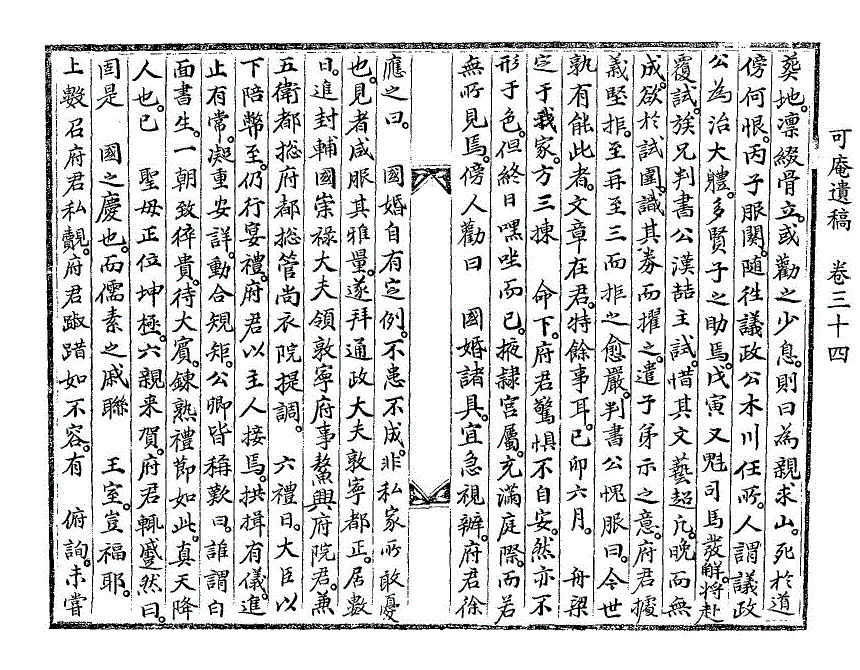 可庵遺稿 卷三十四
葬地。凜綴骨立。或勸之少息。則曰爲親求山。死於道
傍何恨。丙子服闋。隨往議政公木川任所。人謂議政
公爲治大軆。多賢子之助焉。戊寅又魁司馬發解。將赴
覆試。族兄判書公漢喆主試。惜其文藝超凡。晩而無
成。欲於試圍。識其券而擢之。遣子弟示之意。府君據
義堅拒。至再至三而拒之愈嚴。判書公愧服曰。今世
孰有能此者。文章在君。特餘事耳。己卯六月。 舟梁
定于我家。方三揀 命下。府君驚惧不自安。然亦不
形于色。但終日嘿坐而已。掖隷宮屬。充滿庭際。而若
無所見焉。傍人勸曰 國婚諸具。宜急視辦。府君徐
應之曰。 國婚自有定例。不患不成。非私家所敢憂
也。見者咸服其雅量。遂拜通政大夫敦寧都正。居數
日。進封輔國崇祿大夫領敦寧府事鰲興府院君。兼
五衛都摠府都摠管尙衣院提調。 六禮日。大臣以
下陪幣至。仍行宴禮。府君以主人接焉。拱揖有儀。進
止有常。凝重安詳。動合規矩。公卿皆稱歎曰。誰謂白
面書生。一朝致猝貴。待大賓。鍊熟禮節如此。眞天降
人也。已 聖母正位坤極。六親來賀。府君輒蹙然曰。
固是 國之慶也。而儒素之戚聯 王室。豈福耶。
上數召府君私覿。府君踧踖如不容。有 俯詢。未嘗